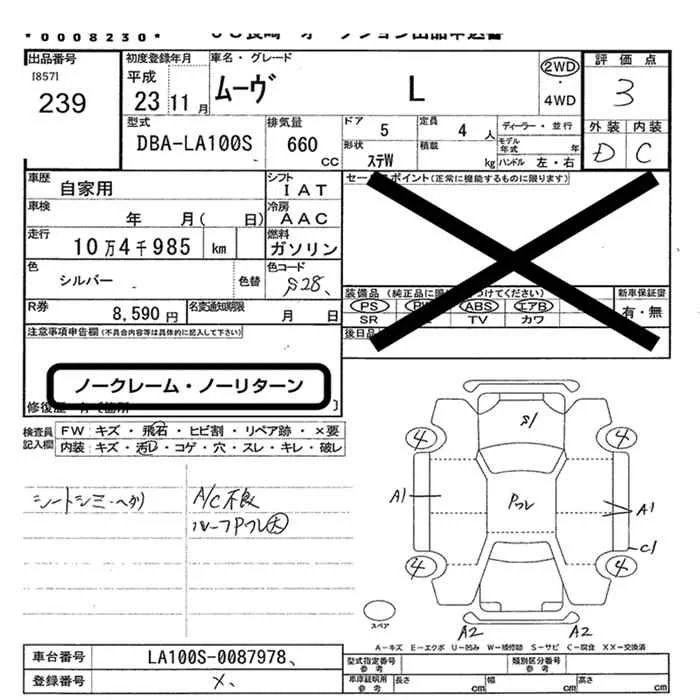 *0008230*
出品番号
[857]
239
初度登録年月
平成
23 11 月
車名・グレード
ムーヴ L
2WD
・
4WD
評価点
3
型式
DBA-LA100S
排気量
660
CC
ドア
5
定員
4 人
ディーラー・並行
モデル年式 年
形状
ステW
積載
kg
ハンドル 左・右
外装 内装
D C
車歴
自家用
シフト
IAT
セールスポイント(正常に機能するものに限ります)
車検
年 月( 日)
冷房
AAC
走行
10万4千985 km
燃料
ガソリン
色
シルバー
色替
色コード
S28、
装備品
PS
ABS
エアB
SR
TV
カワ
新車保証書
有・無
R券
8,590 円
名変通知期限
月 日
後日品
注意事項申告欄(不具合内容等は具体的に記入して下さい)
ノークレーム・ノーリターン
検査員
記入欄
FW キズ・飛石・ヒビ割・リペア跡・×要
内装 キズ・汚レ・コゲ・穴・スレ・キレ・破レ
シートシミ・ヘタリ
A/C不良
ルーフPフレ大
S1
4 4
A1
Pフレ
A1
C1
4 4
スペア
A2 A2
A-キズ E-エクボ U-凹み W-補修跡 S-サビ C-腐食 XX-交換済
車台番号
LA100S-0087978、
型式指定番号
参考
類別区分番号
参考
登録番号
×、
車庫証明用
参考
長さ cm
幅 cm
高さ cm